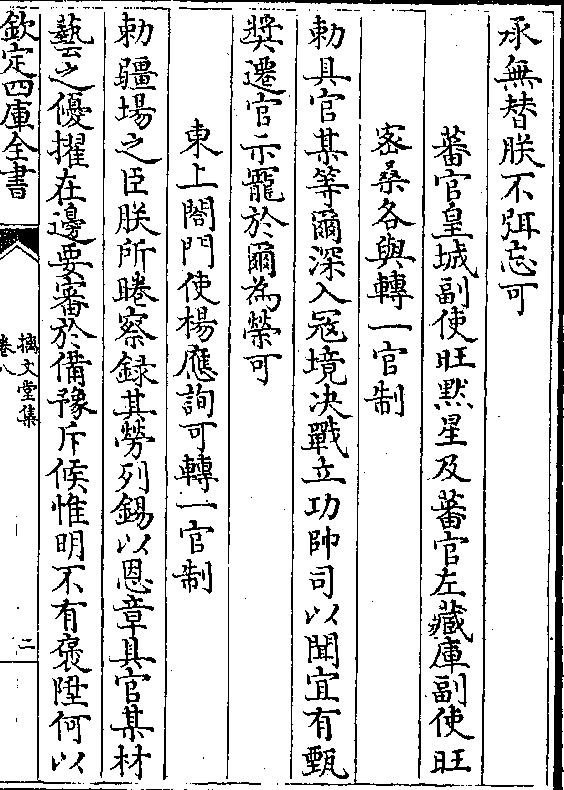 承無替朕不弭忘可
蕃官皇城副使旺黙星及蕃官左藏庫副使旺
宻桑各與轉一官制
勅具官某等爾深入冦境决戰立功帥司以聞宜有甄
奬遷官示寵於爾為榮可
東上閤門使楊應詢可轉一官制
勅疆場之臣朕所睠察録其勞列錫以恩章具官某材
藝之優擢在邊要審於備豫斥候惟明不有褒陞何以
欽定四庫全書
摛文堂集
卷八
二